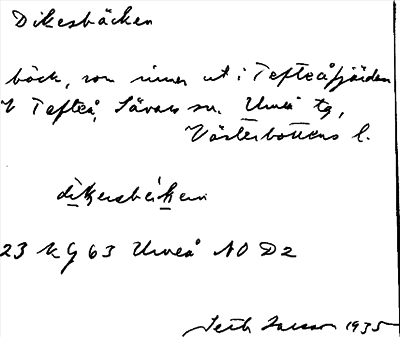 Dikesbäcken
bäck, som rinner ut i Tefteåfjärden
V Tefteå, Sävars sn. Umeå tg,
Västerbottens l.
dikersbäken
23 K g 63 Umeå NO D2
1935